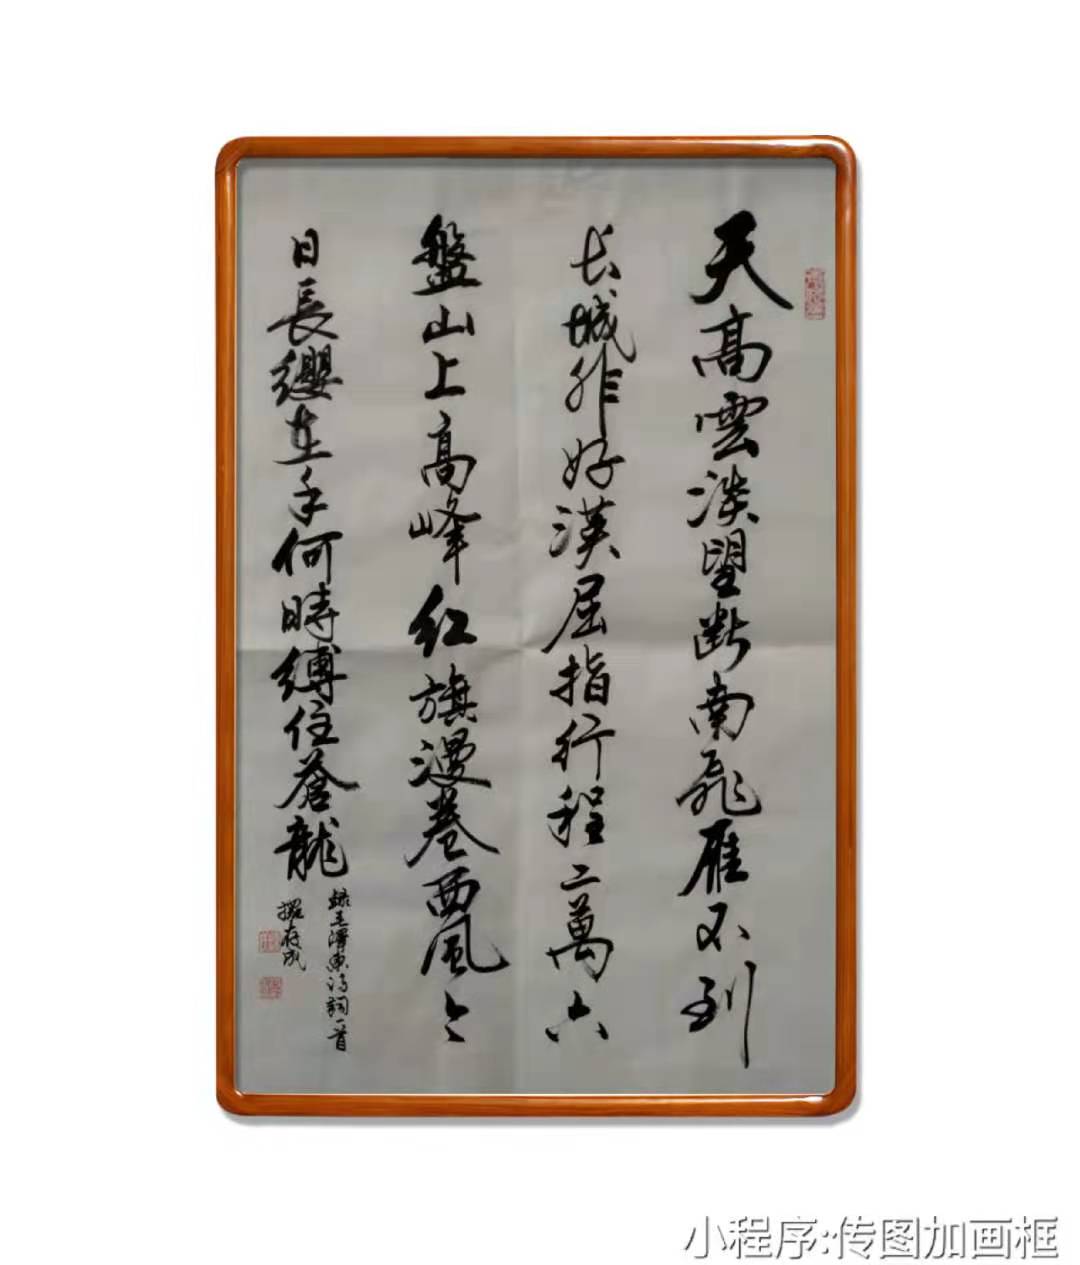 天高雲淡望斷南飛雁不到
长城非好漢屈指行程二萬六
盤山上高峰红旗漫卷西風今
日長纓在手何時縛住蒼龍
録毛澤東诗詞一首
存成
小程序:传图加画框